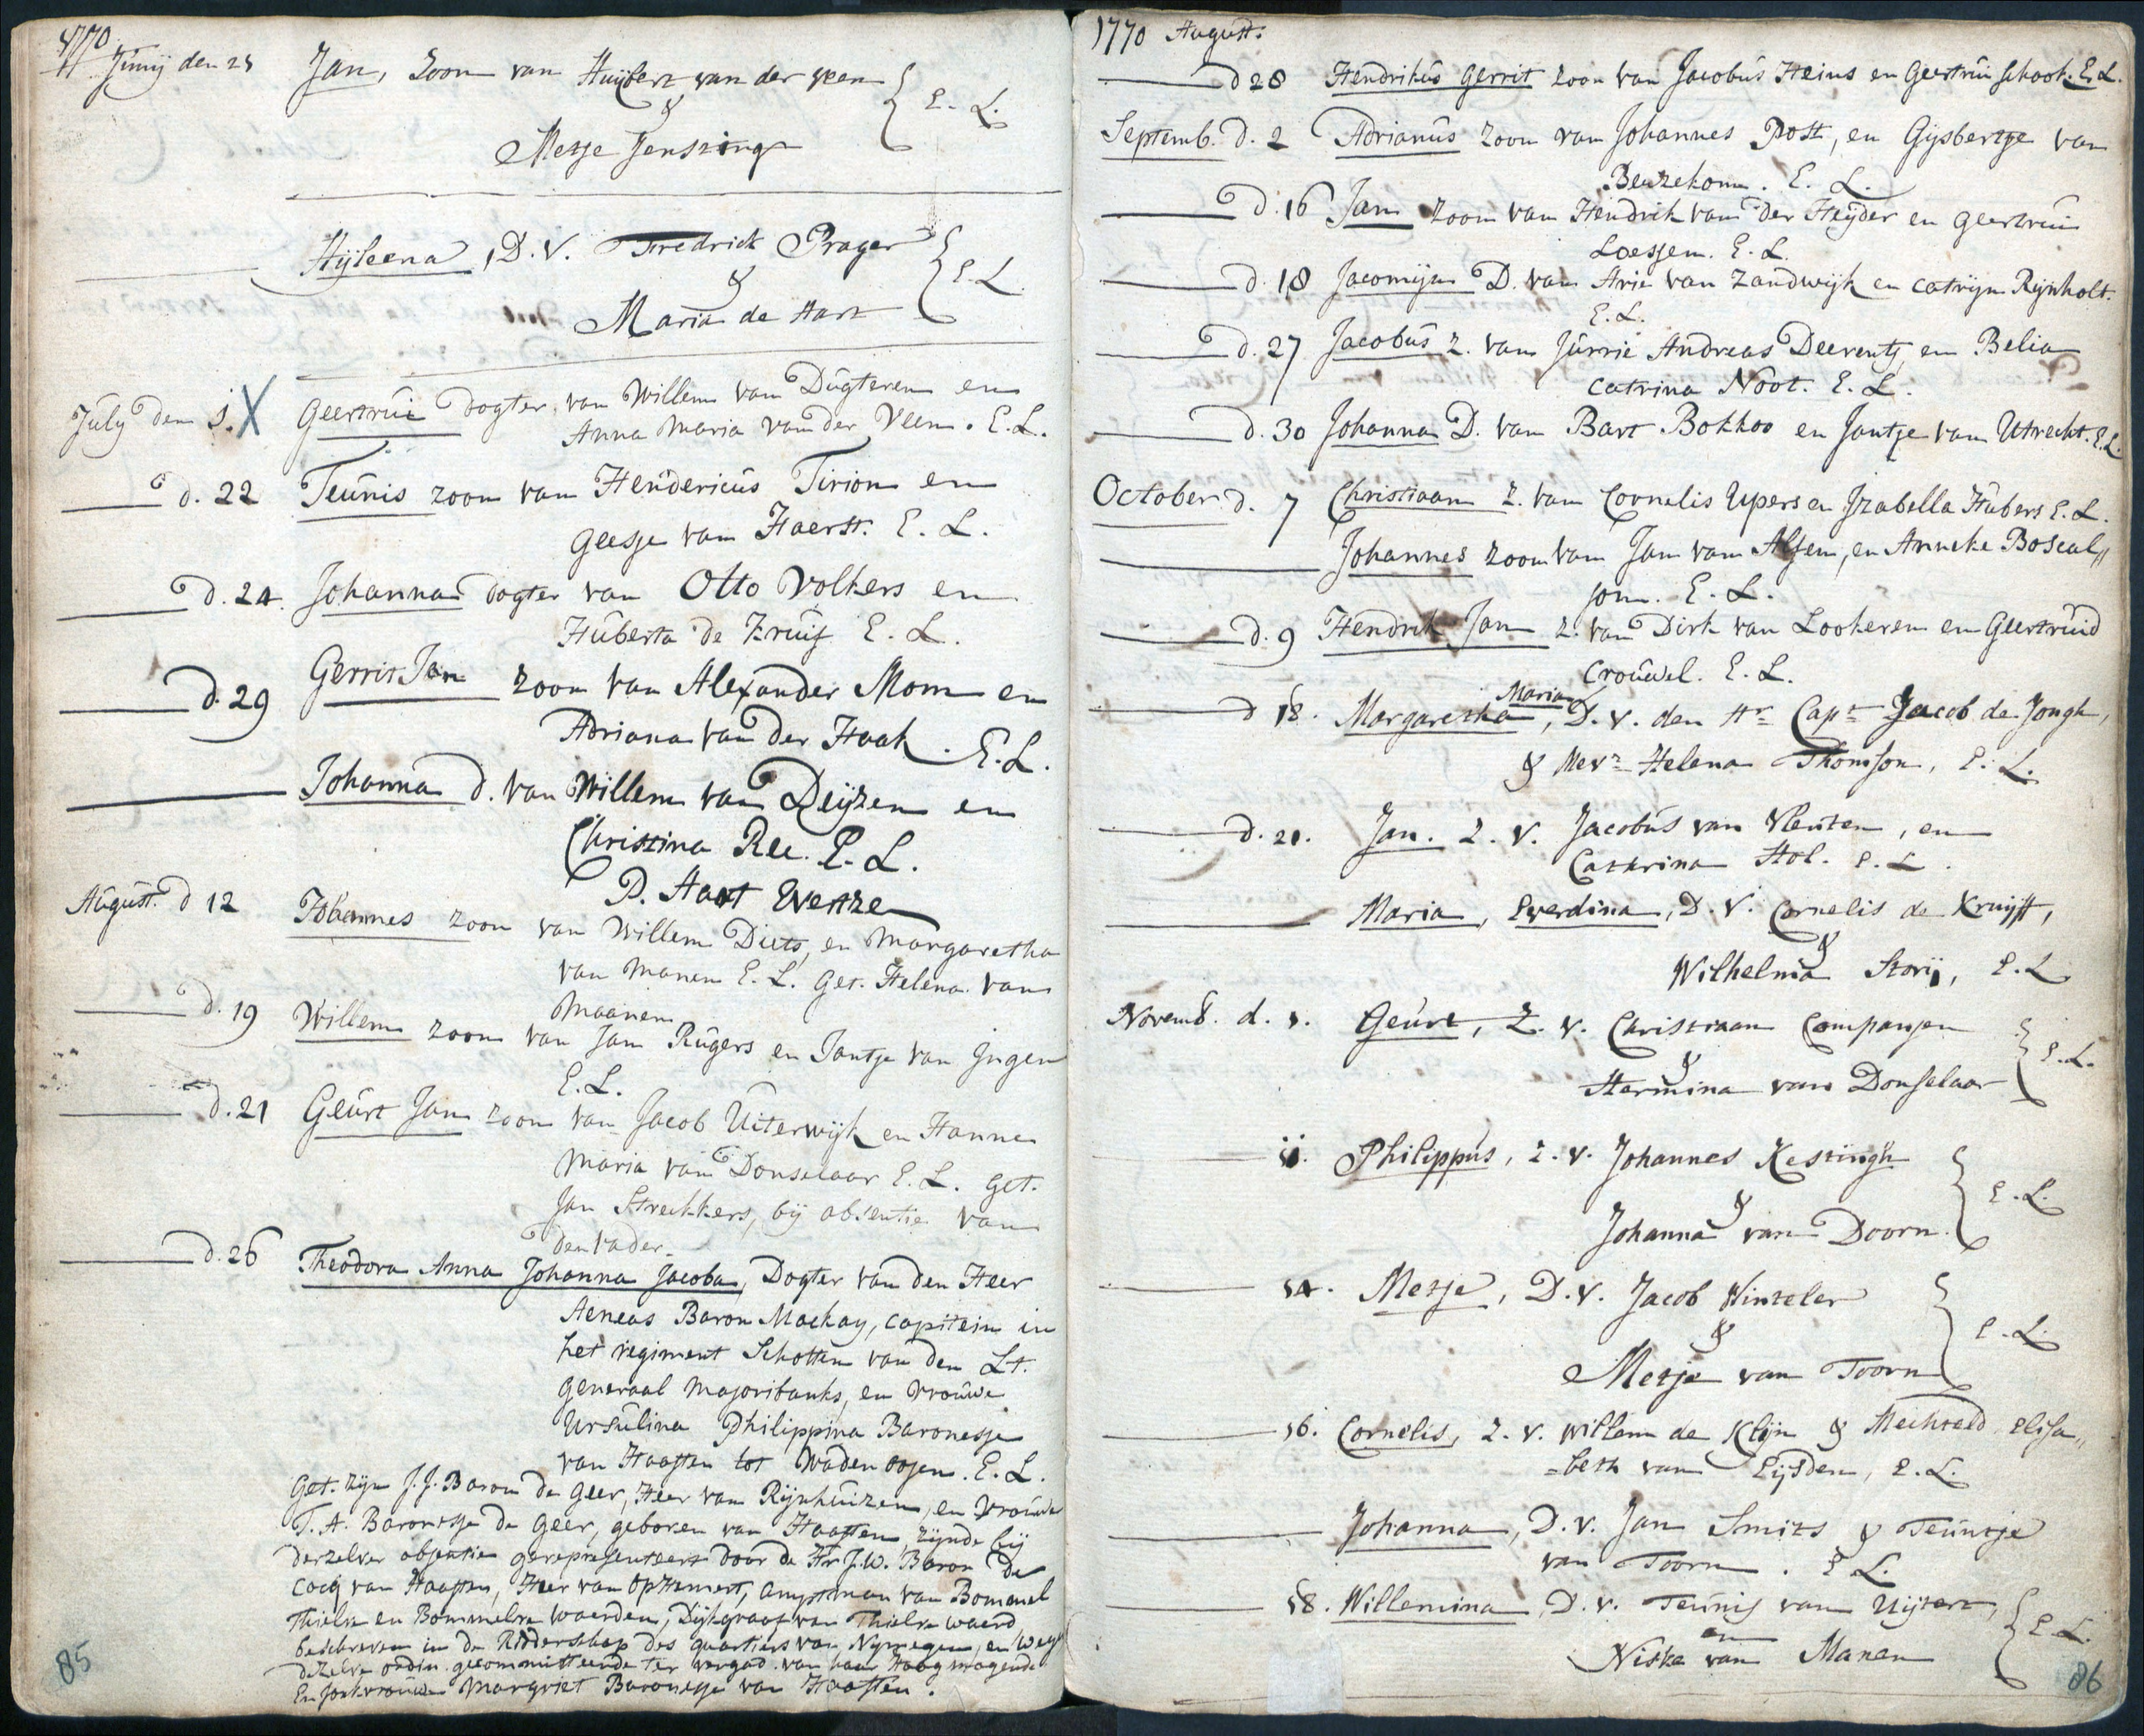 1770
Junij den 24 Jan, Zoon van Huijbert van der veen
&
Metje Jenszing } E. L.
Hijleena, D. V. Fredrick Prager
&
Maria de Hart } E. L.
July den 1. X Geertrui dogter van Willem van Dugteren en
Anna Maria van der Veen. E. L.
d. 22 Teunis zoon van Hendericus Tirion en
Geesje van Haerst. E. L.
d. 24. Johanna dogter van Otto Volkers en
Huberta de Kruif E. L.
d. 29 Gerrit Jan zoon van Alexander Mom en
Adriana van der Haak. E. L.
Johanna d. van Willem van Deijzen en
Christina Ree. E. L.
August. d 12 Johannes zoon van Willem Diets, en Margaretha
van Manen E. L. Get. Helena van
Maanen
d. 19 Willem zoon van Jan Rugers en Jantje van Ingen
E. L.
d. 21 Geurt Jan zoon van Jacob Uiterwijk en Hanna
Maria van Donselaar E. L. get.
Jan Strekkers, bij absentie van
den vader.
d. 26 Theodora Anna Johanna Jacoba, Dogter van den Heer
Aeneas Baron Mackay, capitein in
het regiment Schotten van den Lt.
Generaal Majoribanks, en Vrouwe
Ursulina Philippina Baronesse
van Haasten tot Wadenoojen. E. L.
Get. zijn J. J. Baron de Geer, Heer van Rijnhuizen, en Vrouwe
T. A. Baronesse de Geer, geboren van Haaften, zijnde bij
derzelver absentie gerepresenteert door de Hr J. W. Baron de
Cocq van Haaften, Heer van Ophemert, Amptman van Bommel
Thielre en Bommelre waerden, Dijkgraaf van Thielre waerd
beschreven in de Ridderschap des quartiers van Nymegen, en weg
dezelve ordin. gecommitteerde ter vergad. van haar Hoog mogende
En Jonkvrouwe Margriet Baronesse van Haaften.
85
1770 August.
d 28 Hendrikus Gerrit zoon van Jacobus Heins en Geertrui Schoot. E. L.
Septemb. d. 2 Adrianus zoon van Johannes Post, en Gijsbertje van
Beuzekom. E. L.
d. 16 Jan zoon van Hendrik van der Heijder en Geertrui
Loessen. E. L.
d. 18 Jacomijn D. van Arie van Zandwijk en Catrijn Rijnholt.
E. L.
d. 27 Jacobus Z. van Jurrie Andreas Deerents en Belia
Catrina Noot. E. L.
d. 30 Johanna D. van Bart Bokhoo en Jantje van Utrecht. E. L.
October d. 7 Christiaan Z. van Cornelis Upers en Izabella Hubers E. L.
Johannes zoon van Jan van Alfen, en Anneke Boscal„
jon. E. L.
d. 9 Hendrik Jan Z. van Dirk van Lookeren en Geertruid
Crouwel. E. L.
d 18. Margaretha Maria, D. v. den Hr Capt Jacob de Jongh,
& Mevr Helena Thomson, E. L.
d. 21. Jan. Z. V. Jacobus van Vleuten, en
Cathrina Hol. E. L.
Maria, Everdina, D. V. Cornelis de Kruijff,
&
Wilhelmia Storij, E. L
Novemb. d. 1. Geurt, Z. v. Christiaan Companjen
&
Hermina van Donselaar } E. L.
11. Philippus, Z. v. Johannes Kesting
&
Johanna van Doorn } E. L.
14. Metje, D. v. Jacob Winteler
&
Metje van Toorn } E. L.
16. Cornelis, Z. v. Willem de Klijn & Mechteld Elisa„
=beth van Eijsden, E. L.
Johanna, D. v. Jan Smits & Teuntje
van Toorn. E L.
18. Willemina, D. v. Teunis van Uijtert,
en
Niska van Manen } E. L.
86